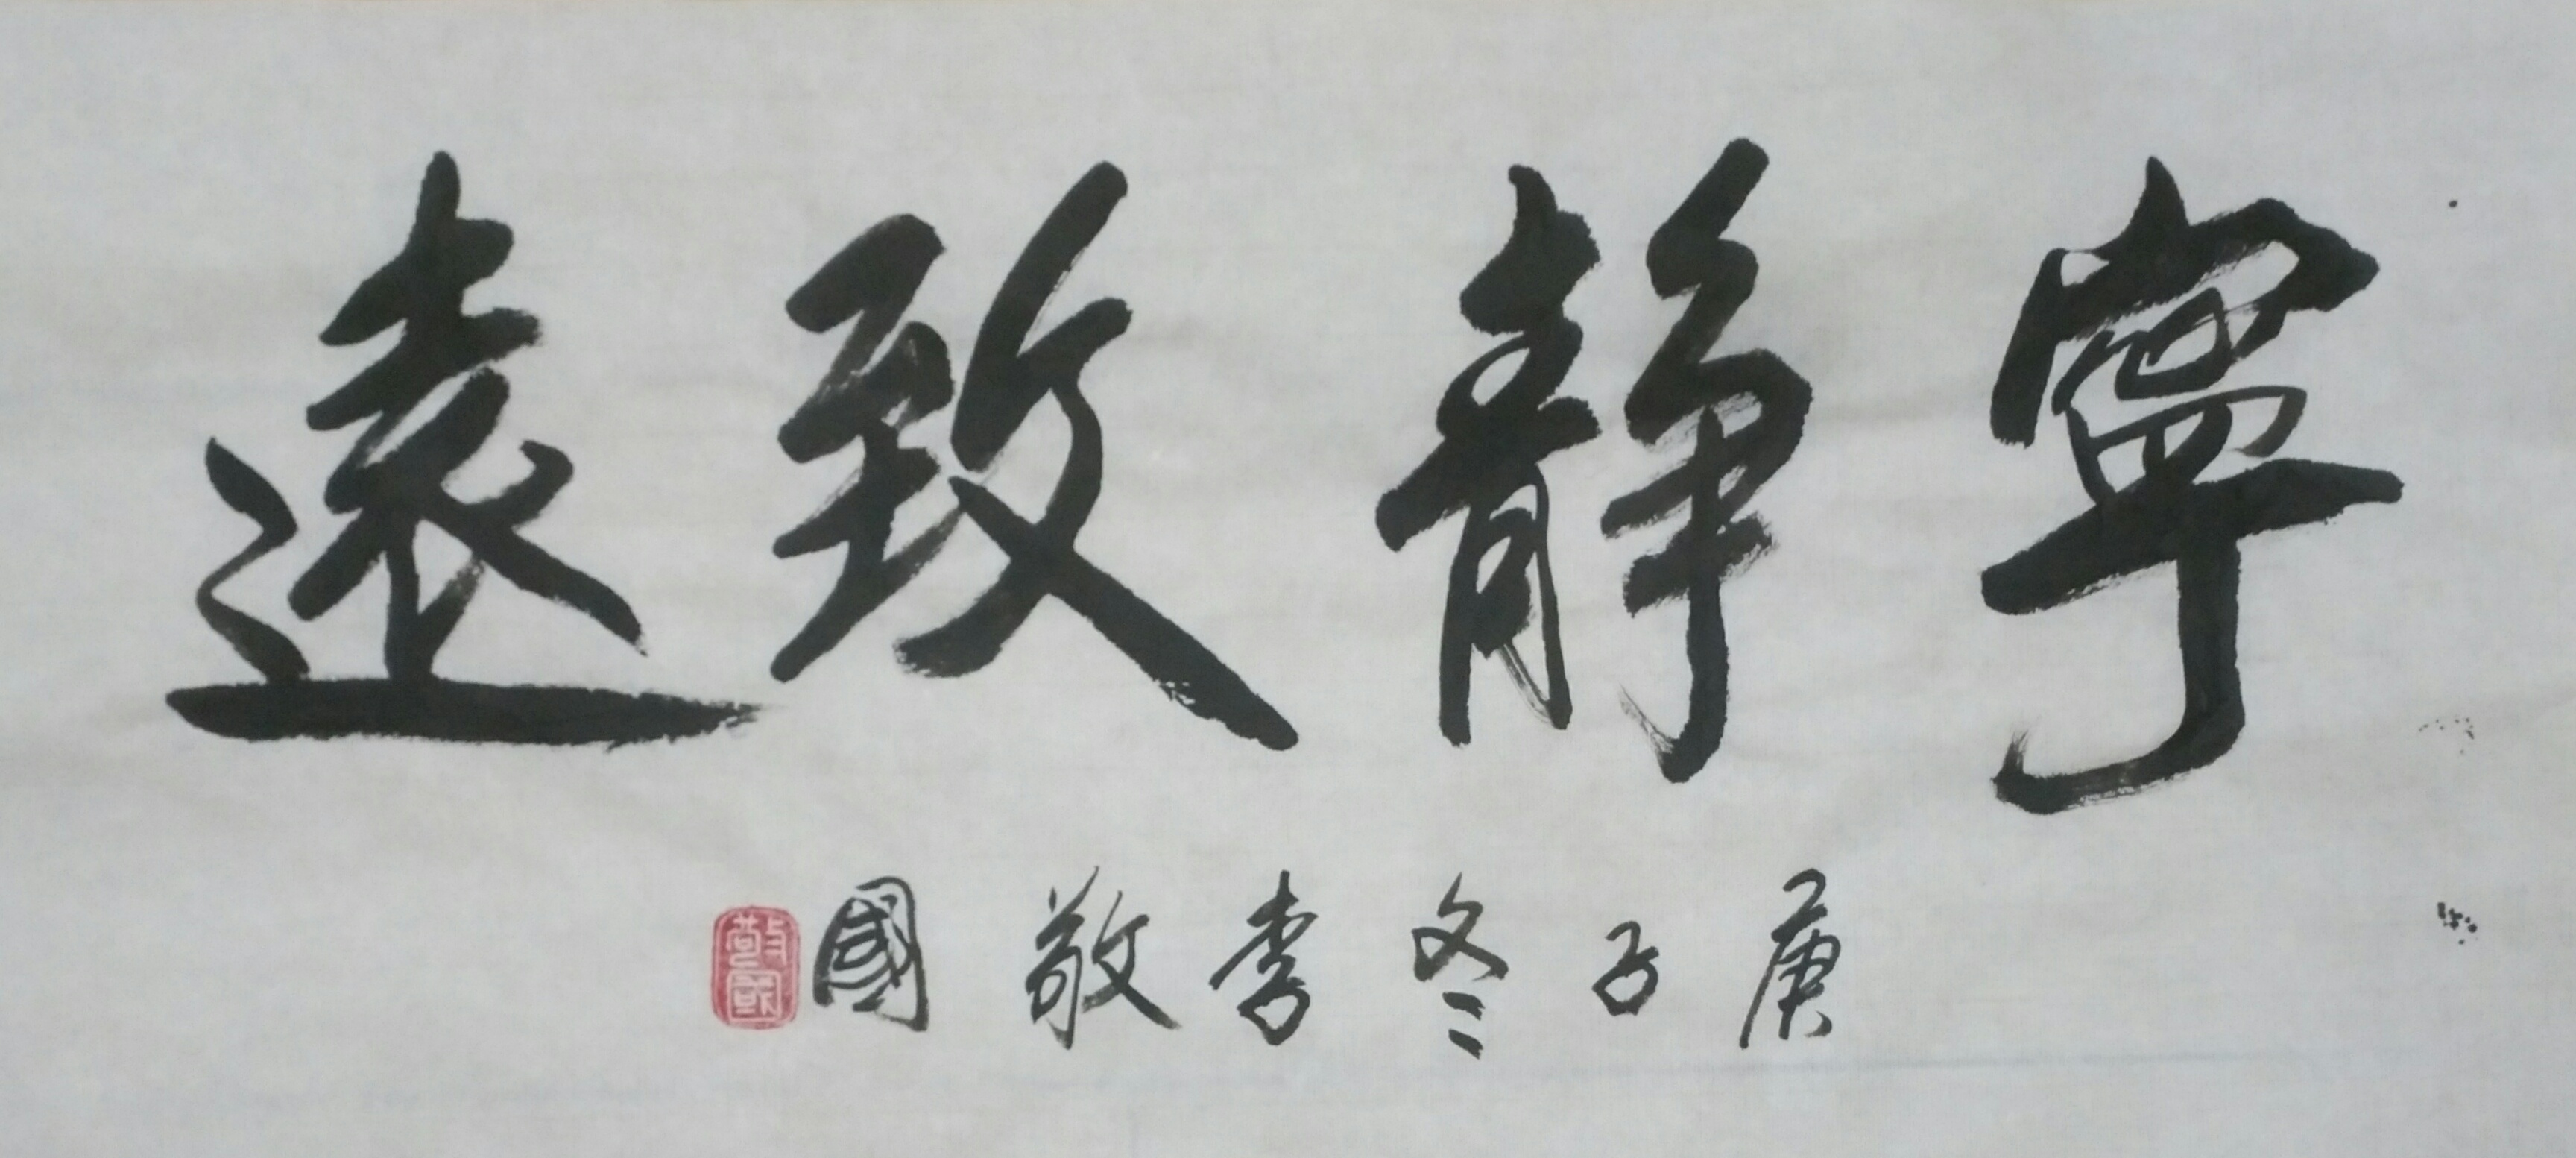 寧靜致遠
庚子冬李敬國
敬國